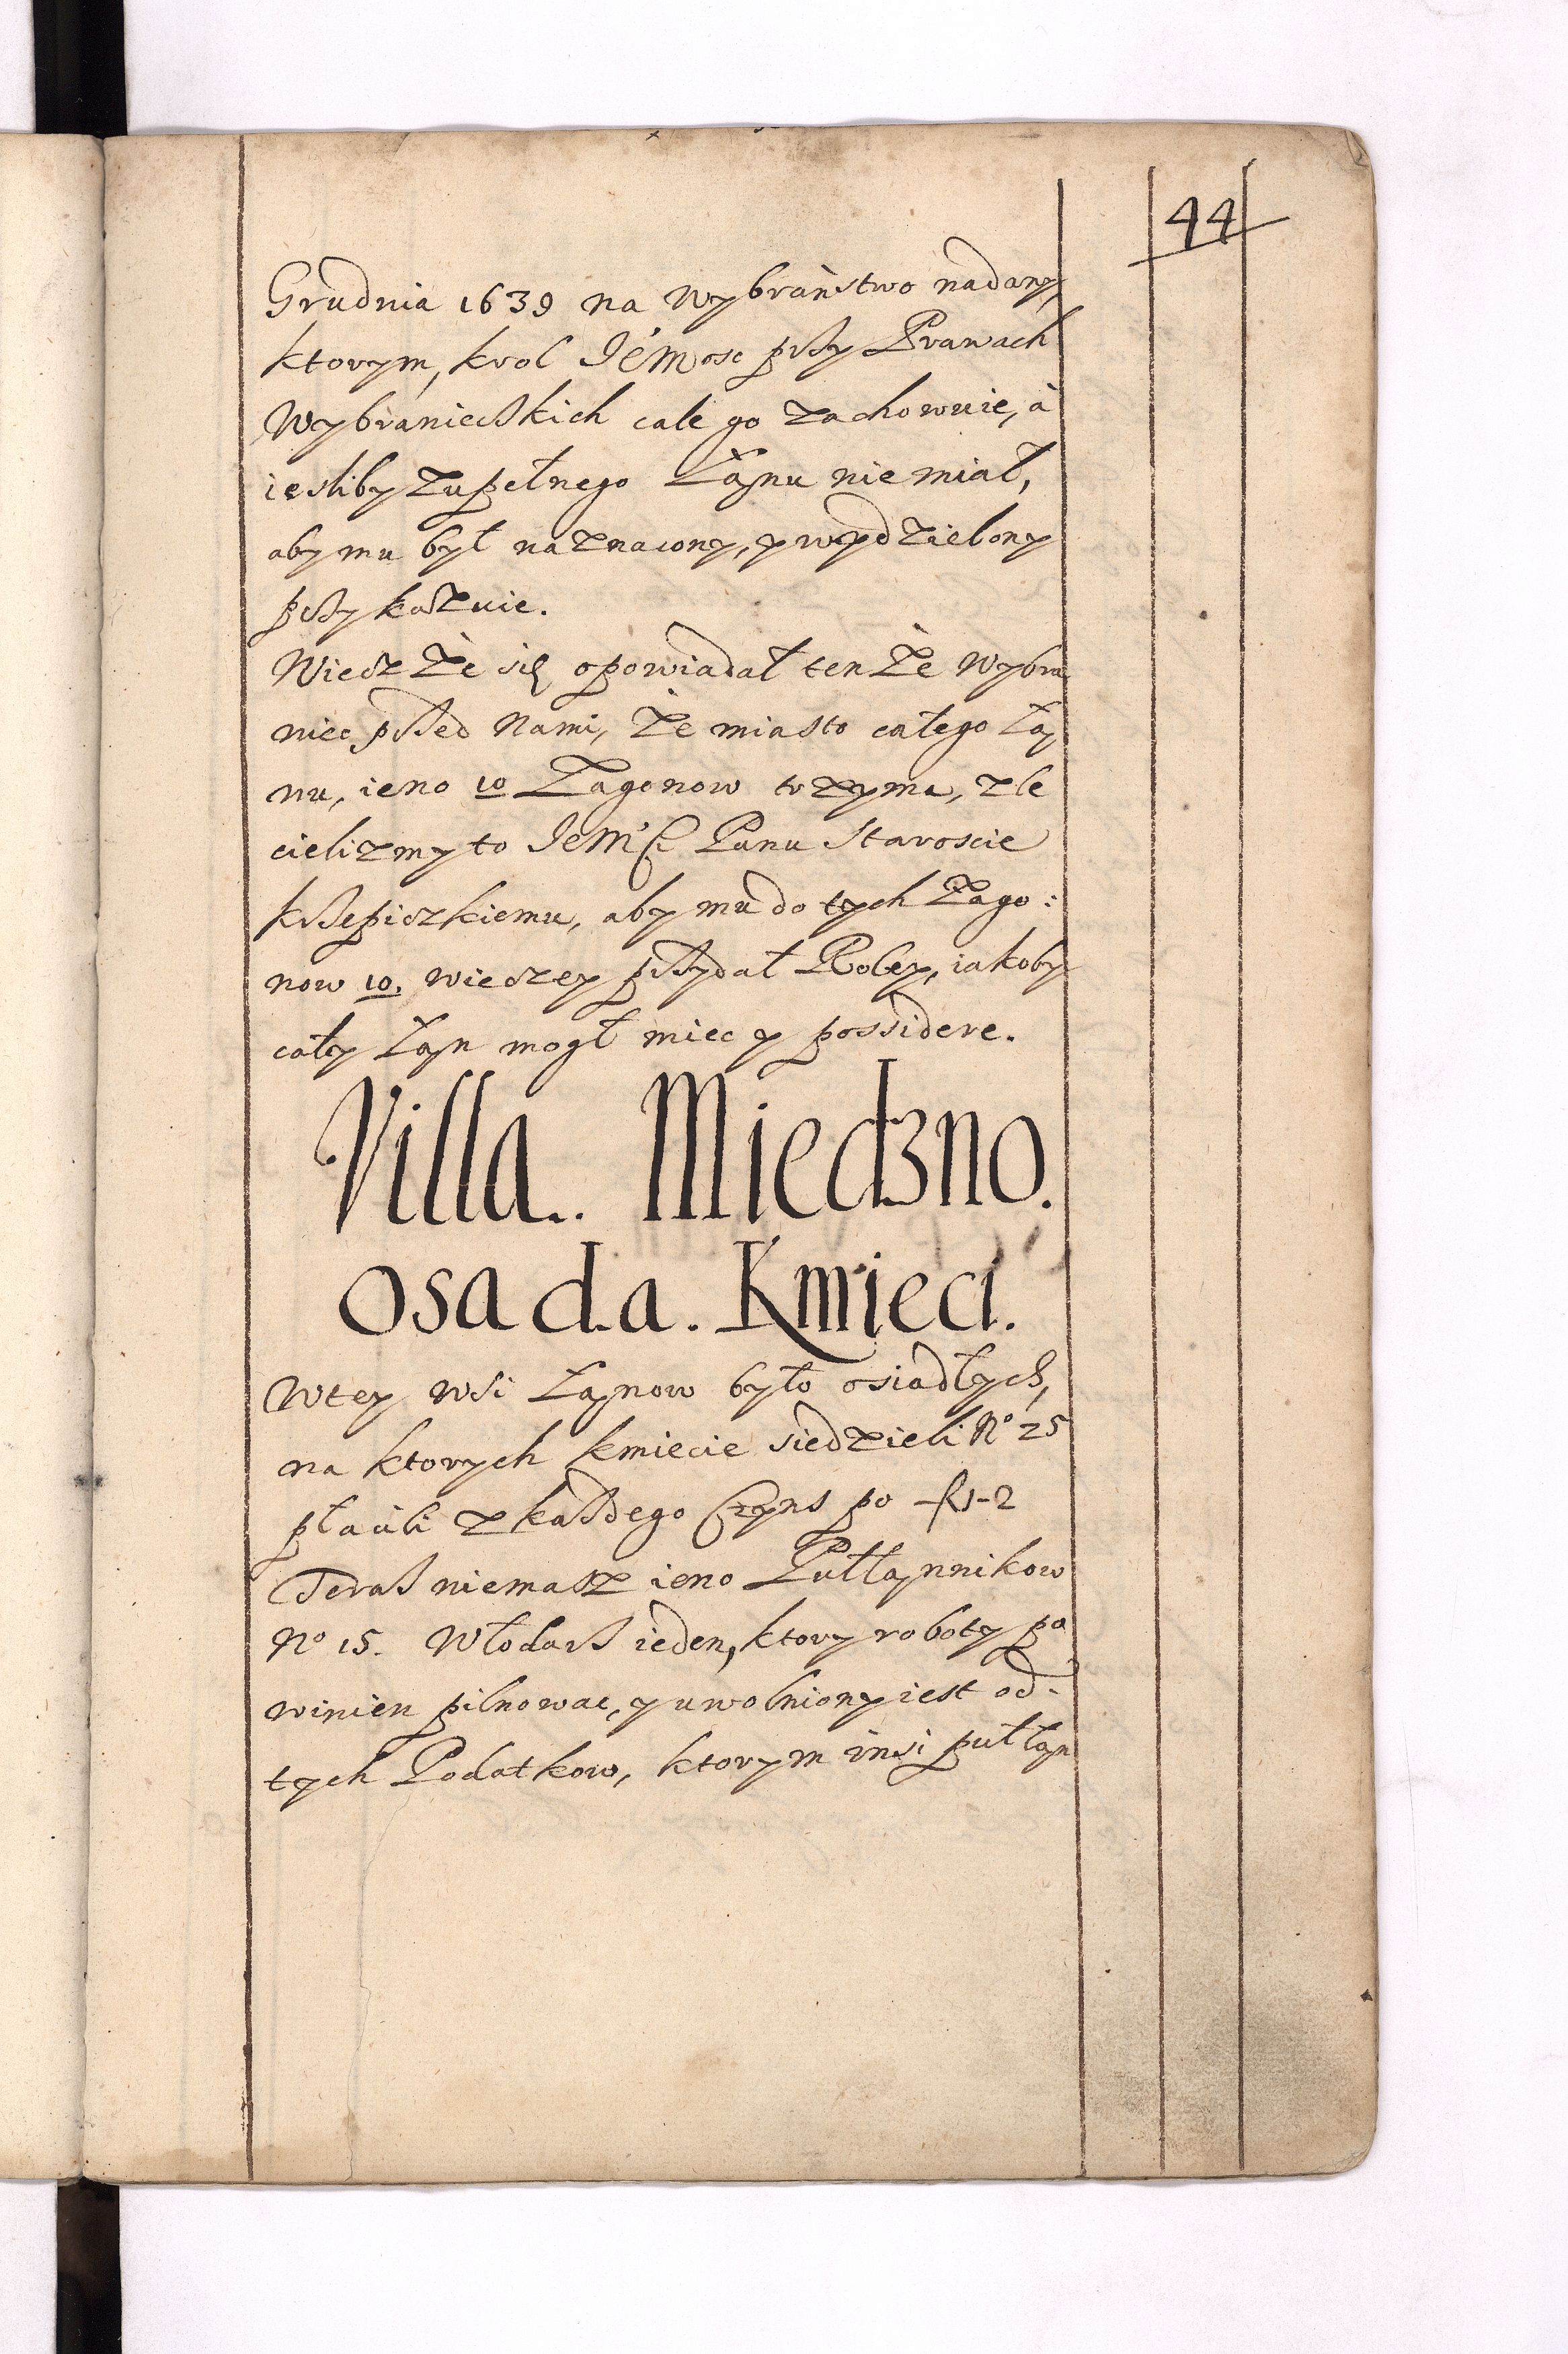 44
Grudnia 1639 na Wybraństwo nadany,
ktorym, krol JeMosc przy Prawach
Wybranieckich cale go zachowuie, à
iesliby zupełnego Łanu nie miał,
aby mu był naznacony, y wydzielony
przykazuie.
Wiecz że się opowiadał tenże Wybra
niec przed Nami, że miasto całego ła
nu, ieno 10 Zagonow trzyma, zle
cielizmy to JeMści Panu Staroscie
krzepiczkiemu, aby mu do tych Zago:
now 10. wieczey przydał Roley, iakoby
cały łan mogł miec y possidere.
Villa. Miedzno.
Osada. Kmieci.
W tey wsi Łanow było osiadłych,
na ktorych kmiecie siedzieli No 25
płacili z kazdego Czyns po fl-2
Teras niemasz ieno Pułłannikow
No 15. Włodarz ieden, ktory roboty po
winien pilnowac, y uwolniony iest od
tych Podatkow, ktorym insi pułłan